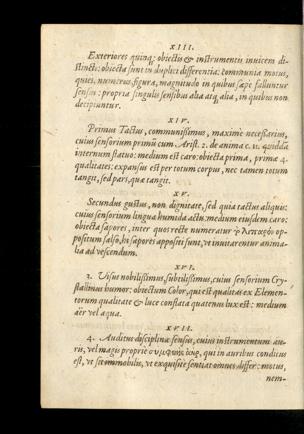 XIII.
Exteriores quinq; obiectis & instrumentis inuicem di-
stincti: obiecta sunt in duplici differentia: communia motus,
quies, numerus, figura, magnitudo in quibus sæpe falluntur
sensus: propria singulis sensibus alia atq; alia, in quibus non
decipiuntur.
XIV.
Primus Tactus, communissimus, maxime necessarius,
cuius sensorium primū cum Arist. 2. de anima c. 11. quiddā
internum statuo: medium est caro: obiecta prima, primæ 4.
qualitates: expansus est per totum corpus, nec tamen totum
tangit, sed pars, qua tangit.
XV.
Secundus gustus, non dignitate, sed quia tactus aliquis:
cuius sensorium lingua humida actu: medium eiusdem caro:
obiecta sapores, inter quos recte numeratur op-
positum salso, hi sapores appositi sunt, vt inuitarentur anima-
lia ad vescendum.
XVI.
3. Visus nobilissimus, subtilissimus, cuius sensorium Cry-
stallinus humor: obiectum Color, qui est qualitas ex Elemen-
torum qualitate & luce conflata quatenus lux est: medium
aër vel aqua.
XVII.
4. Auditus disciplinæ sensus, cuius instrumentum au-
ris, vel magis proprie qui in auribus conditus
est, vt sit immobilis, vt exquisite sentiat omnes differ: motus,
nem-